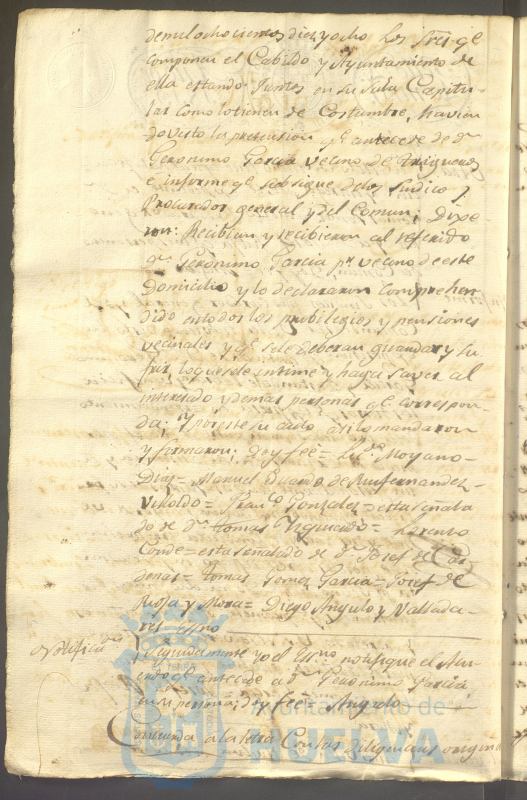 de mil ochocientos diez y ocho los Sres. qe
componen el Cabildo y Ayuntamiento de
ella estando Juntos en su Sala Capitu-
lar como lo tienen de Costumbre, havien
do visto la pretension qe antecede de Dn
Geronimo Garcia vecino de trigueros
e informe qe subsigue de los Sindico y
Procurador general y del Comun; Dixe
ron: Recibian y recibieron al referido
Dn Geronimo Garcia pr vecino de este
Domicilio y lo declararon comprehen
dido en todos los pribilegios y pensiones
vecinales y qe se le deberan guardar y su
frir, lo que se le intime y haga saver al
interesado y demas personas qe correspon-
da; Y por este su auto asi lo mandaron
y firmaron; doy feé= Licdo Moyano=
Diaz= Manuel Eduardo de Fernandez=
Franco Gonzalez= esta señala
do de Dn tomas Figueredo= Lorenzo
Conde= esta señalado de Dn Josef de Car
denas= tomas Gomez Garcia= Josef de
Rioja y Mora= Diego Angulo y Vallada
res Essno
Notificon
Seguidamente yo el Essno notifique el Acu-
erdo qe antecede a Dn Geronimo Garcia
en su persona; doy feé= Angulo
Concuerda a la letra Con las diligencias origina
Ayuntamiento de
HUELVA